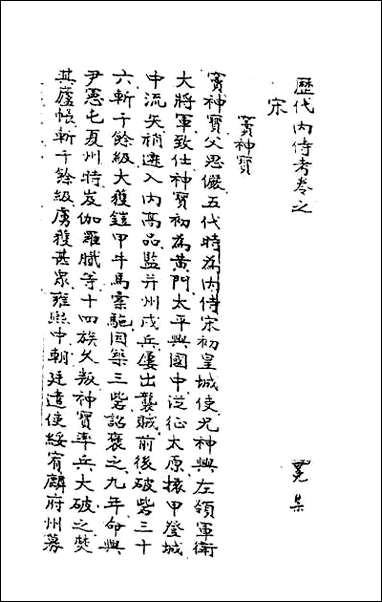 歷代內侍考卷之
宋
集
竇神寶
竇神寶父思儼五代時為內侍宋初皇城使兄神興左領軍衛
大將軍致仕神寶初為黃門太平興國中從征太原擐甲登城
中流矢稍遷入內高品監并州戍兵屢出襲賊前後破砦三十
六斬千餘級大獲鎧甲牛馬橐駞因築三砦詔褒之九年命與
尹憲屯夏州時岌伽羅膩等十四族久叛神寶率兵大破之焚
其廬帳斬千餘級虜獲甚眾雍熙中朝廷遣使綏宥麟府州募